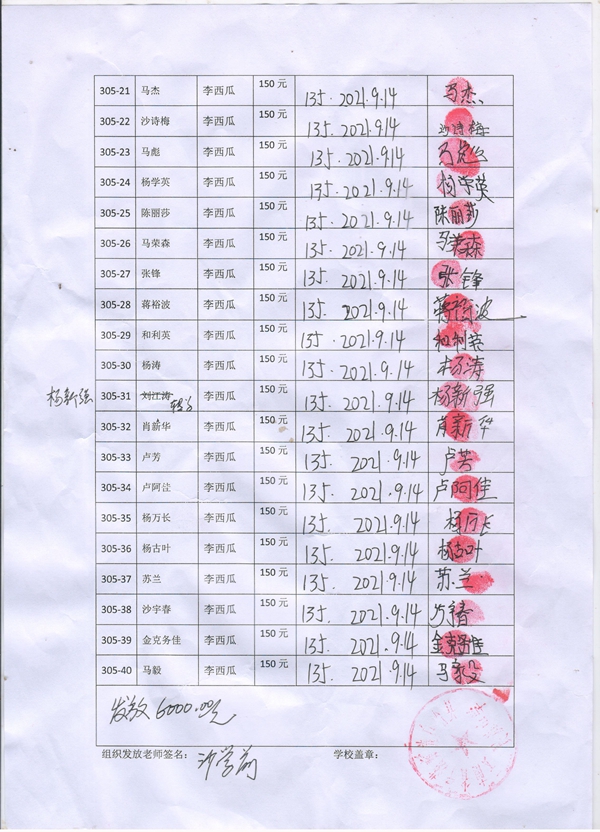 305-21 马杰 李西瓜 150 元 135. 2021.9.14 马杰
305-22 沙诗梅 李西瓜 150 元 135. 2021.9.14 沙诗梅
305-23 马彪 李西瓜 150 元 135. 2021.9.14 马彪
305-24 杨学英 李西瓜 150 元 135. 2021.9.14 杨学英
305-25 陈丽莎 李西瓜 150 元 135. 2021.9.14 陈丽莎
305-26 马荣森 李西瓜 150 元 135. 2021.9.14 马荣森
305-27 张锋 李西瓜 150 元 135. 2021.9.14 张锋
305-28 蒋裕波 李西瓜 150 元 135. 2021.9.14 蒋裕波
305-29 和利英 李西瓜 150 元 135. 2021.9.14 和利英
305-30 杨涛 李西瓜 150 元 135. 2021.9.14 杨涛
杨新强 305-31 刘江涛 转学 李西瓜 150 元 135. 2021.9.14 杨新强
305-32 肖新华 李西瓜 150 元 135. 2021.9.14 肖新华
305-33 卢芳 李西瓜 150 元 135. 2021.9.14 卢芳
305-34 卢阿佳 李西瓜 150 元 135. 2021.9.14 卢阿佳
305-35 杨万长 李西瓜 150 元 135. 2021.9.14 杨万长
305-36 杨古叶 李西瓜 150 元 135. 2021.9.14 杨古叶
305-37 苏兰 李西瓜 150 元 135. 2021.9.14 苏兰
305-38 沙宇春 李西瓜 150 元 135. 2021.9.14 沙宇春
305-39 金克务佳 李西瓜 150 元 135. 2021.9.14 金克务佳
305-40 马毅 李西瓜 150 元 135. 2021.9.14 马毅
发放6000.00元
组织发放老师签名: 沙学前 学校盖章: